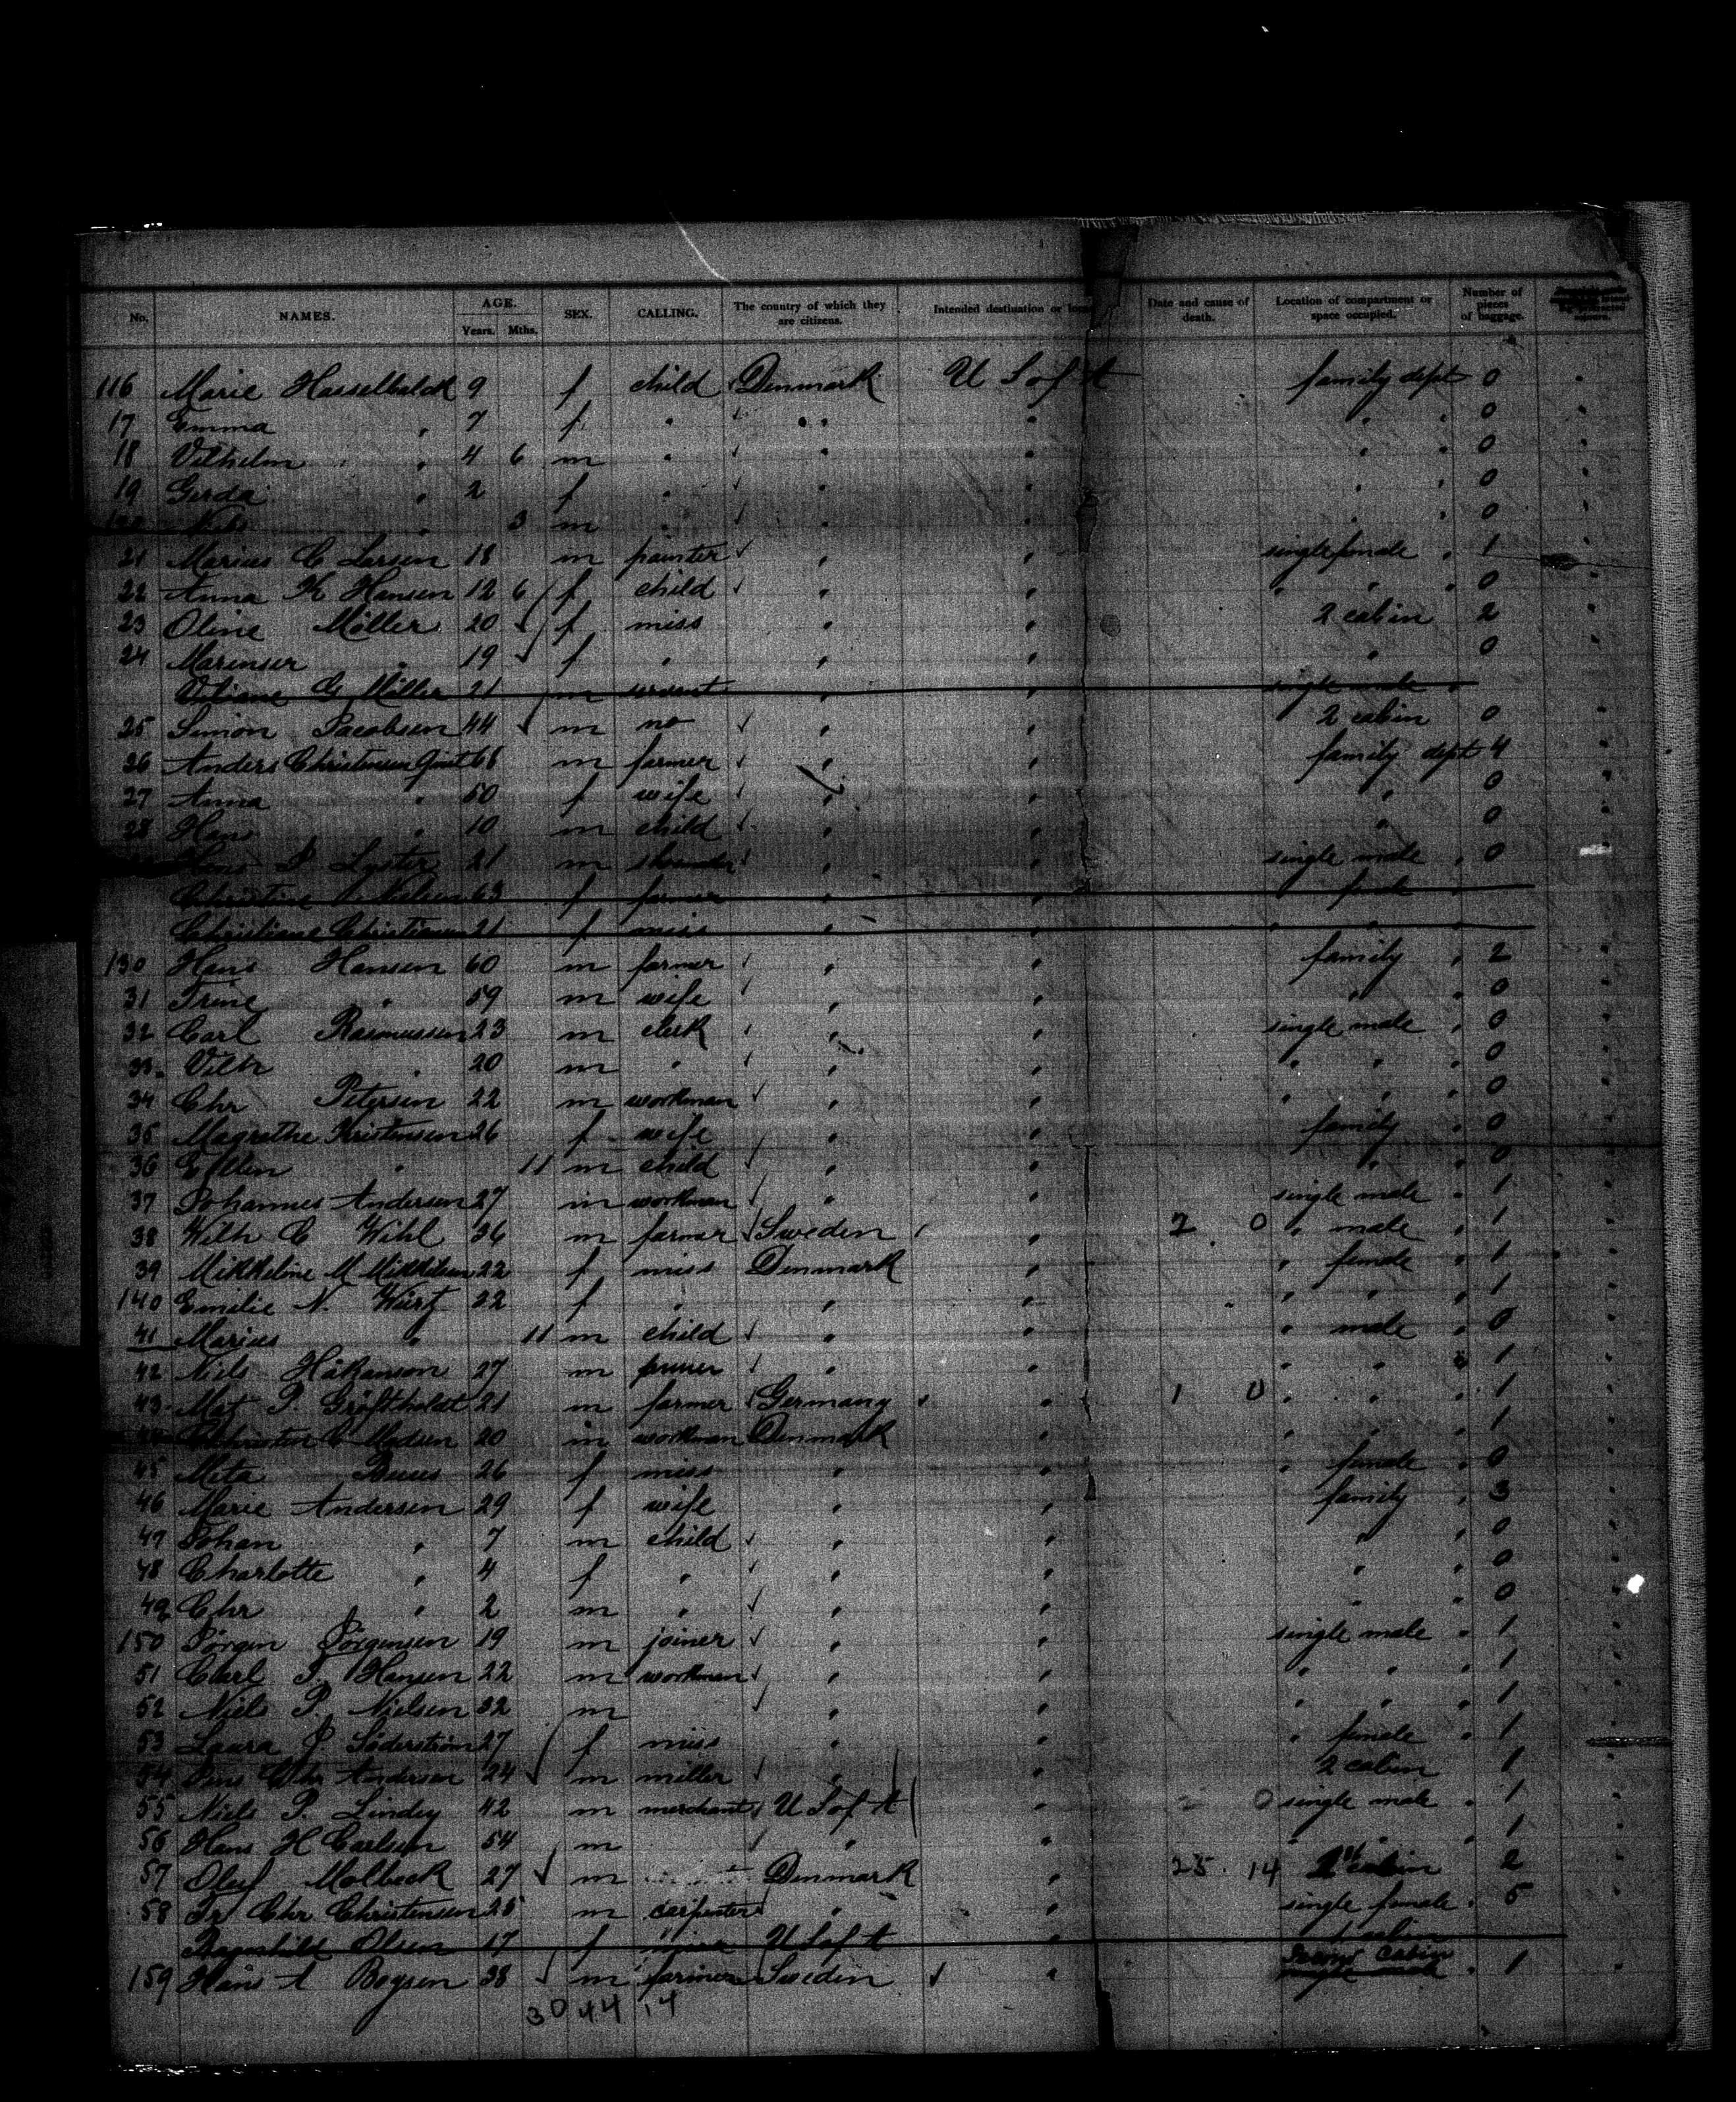 No. NAMES. AGE. Years. Mths. SEX. CALLING. The country of which they are citizens. Intended destination or Date and cause of death. Location of compartment or space occupied. Number of pieces of baggage.
116 Marie Hasselbalch 9 f child Denmark U S of A family dept 0
17 Emma " 7 f " " " " " 0
18 Vilhelm " 4 6 m " " " " " 0
19 Gerda " 2 f " " " " " 0
" 3 m " " " " " 0
21 Marius C Larsen 18 m painter " " single female " 1
22 Anna K Hansen 12 6 f child " " " " " 0
23 Oline Möller 20 f miss " " 2 cabin 2
24 Marenser " 19 f " " " " 0
G Möller 21 m servant " " single male "
25 Simon Jacobsen 44 m no " " 2 cabin 0
26 Anders Christensen 68 m farmer " " family dept 4
27 Anna " 50 f wife " " " 0
28 Hans " 10 m child " " " 0
Hans P 21 m " " single male " 0
Christine Nielsen 63 f farmer " " female
Christiane Christiansen 21 f miss " " " " "
130 Hans Hansen 60 m farmer " " family " 2
31 Trine " 59 m wife " " " " 0
32 Carl Rasmussen 23 m clerk " " single male " 0
33 Vilh " 20 m " " " " " " 0
34 Chr Petersen 22 m workman " " " " " 0
35 Magrethe Kristensen 26 f wife " " family " 0
36 " 11 m child " " " " 0
37 Johannes Andersen 27 m workman " " single male " 1
38 Wilh C Wihl 36 m farmer Sweden " 2 0 " male " 1
39 Mikkeline M Mikkelsen 22 f miss Denmark " " female " 1
140 Emilie N. Würtz 22 f " " " " " " 1
41 Marius " 11 m child " " " male " 0
42 Niels Håkanson 27 m " " " " " 1
43 P. Gröftholdt 21 m farmer Germany " 1 0 " " " 1
Christen C Madsen 20 m workman Denmark " " " 1
45 Meta Buus 26 f miss " " " female " 0
46 Marie Andersen 29 f wife " " family " 3
47 Johan " 7 m child " " " " 0
48 Charlotte " 4 f " " " " " 0
49 Chr " 2 m " " " " " 0
150 Jörgen Jörgensen 19 m joiner " " single male " 1
51 Carl J. Hansen 22 m workman " " " " " 1
52 Niels P. Nielsen 32 m " " " " " 1
53 Laura P Söderström 27 f miss " " " female " 1
54 Jens Chr Andersen 24 m miller " " 2 cabin 1
55 Niels P. Lindey 42 m merchant U S of A " 0 single male " 1
56 Hans H Carlsen 54 m " " " " " 1
57 Oluf Molbeck 27 m Denmark " 25 14 cabin 2
58 Fr Chr Christensen 25 m carpenter " " single female " 5
Ragnhild Olsen 17 f U S of A " 1 cabin
159 Hans A Boysen 38 m farmer Sweden " cabin " 1
3044 14